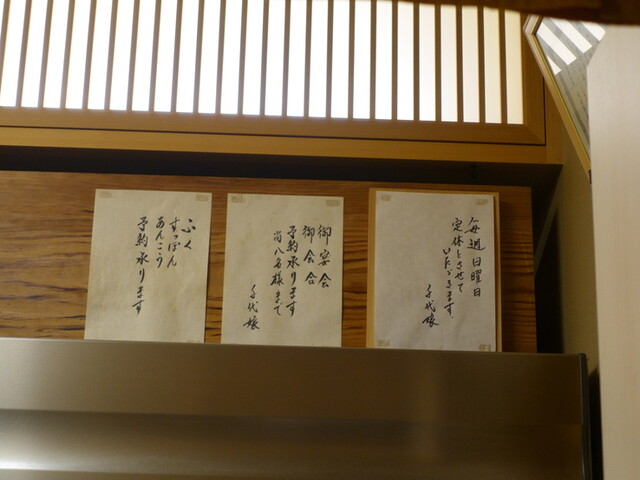 毎週日曜日
定休とさせて
いたゞきます.
千代娘
御宴会
御会合
予約承ります
尚八名様まで
千代娘
ふく
すっぽん
あんこう
予約承ります